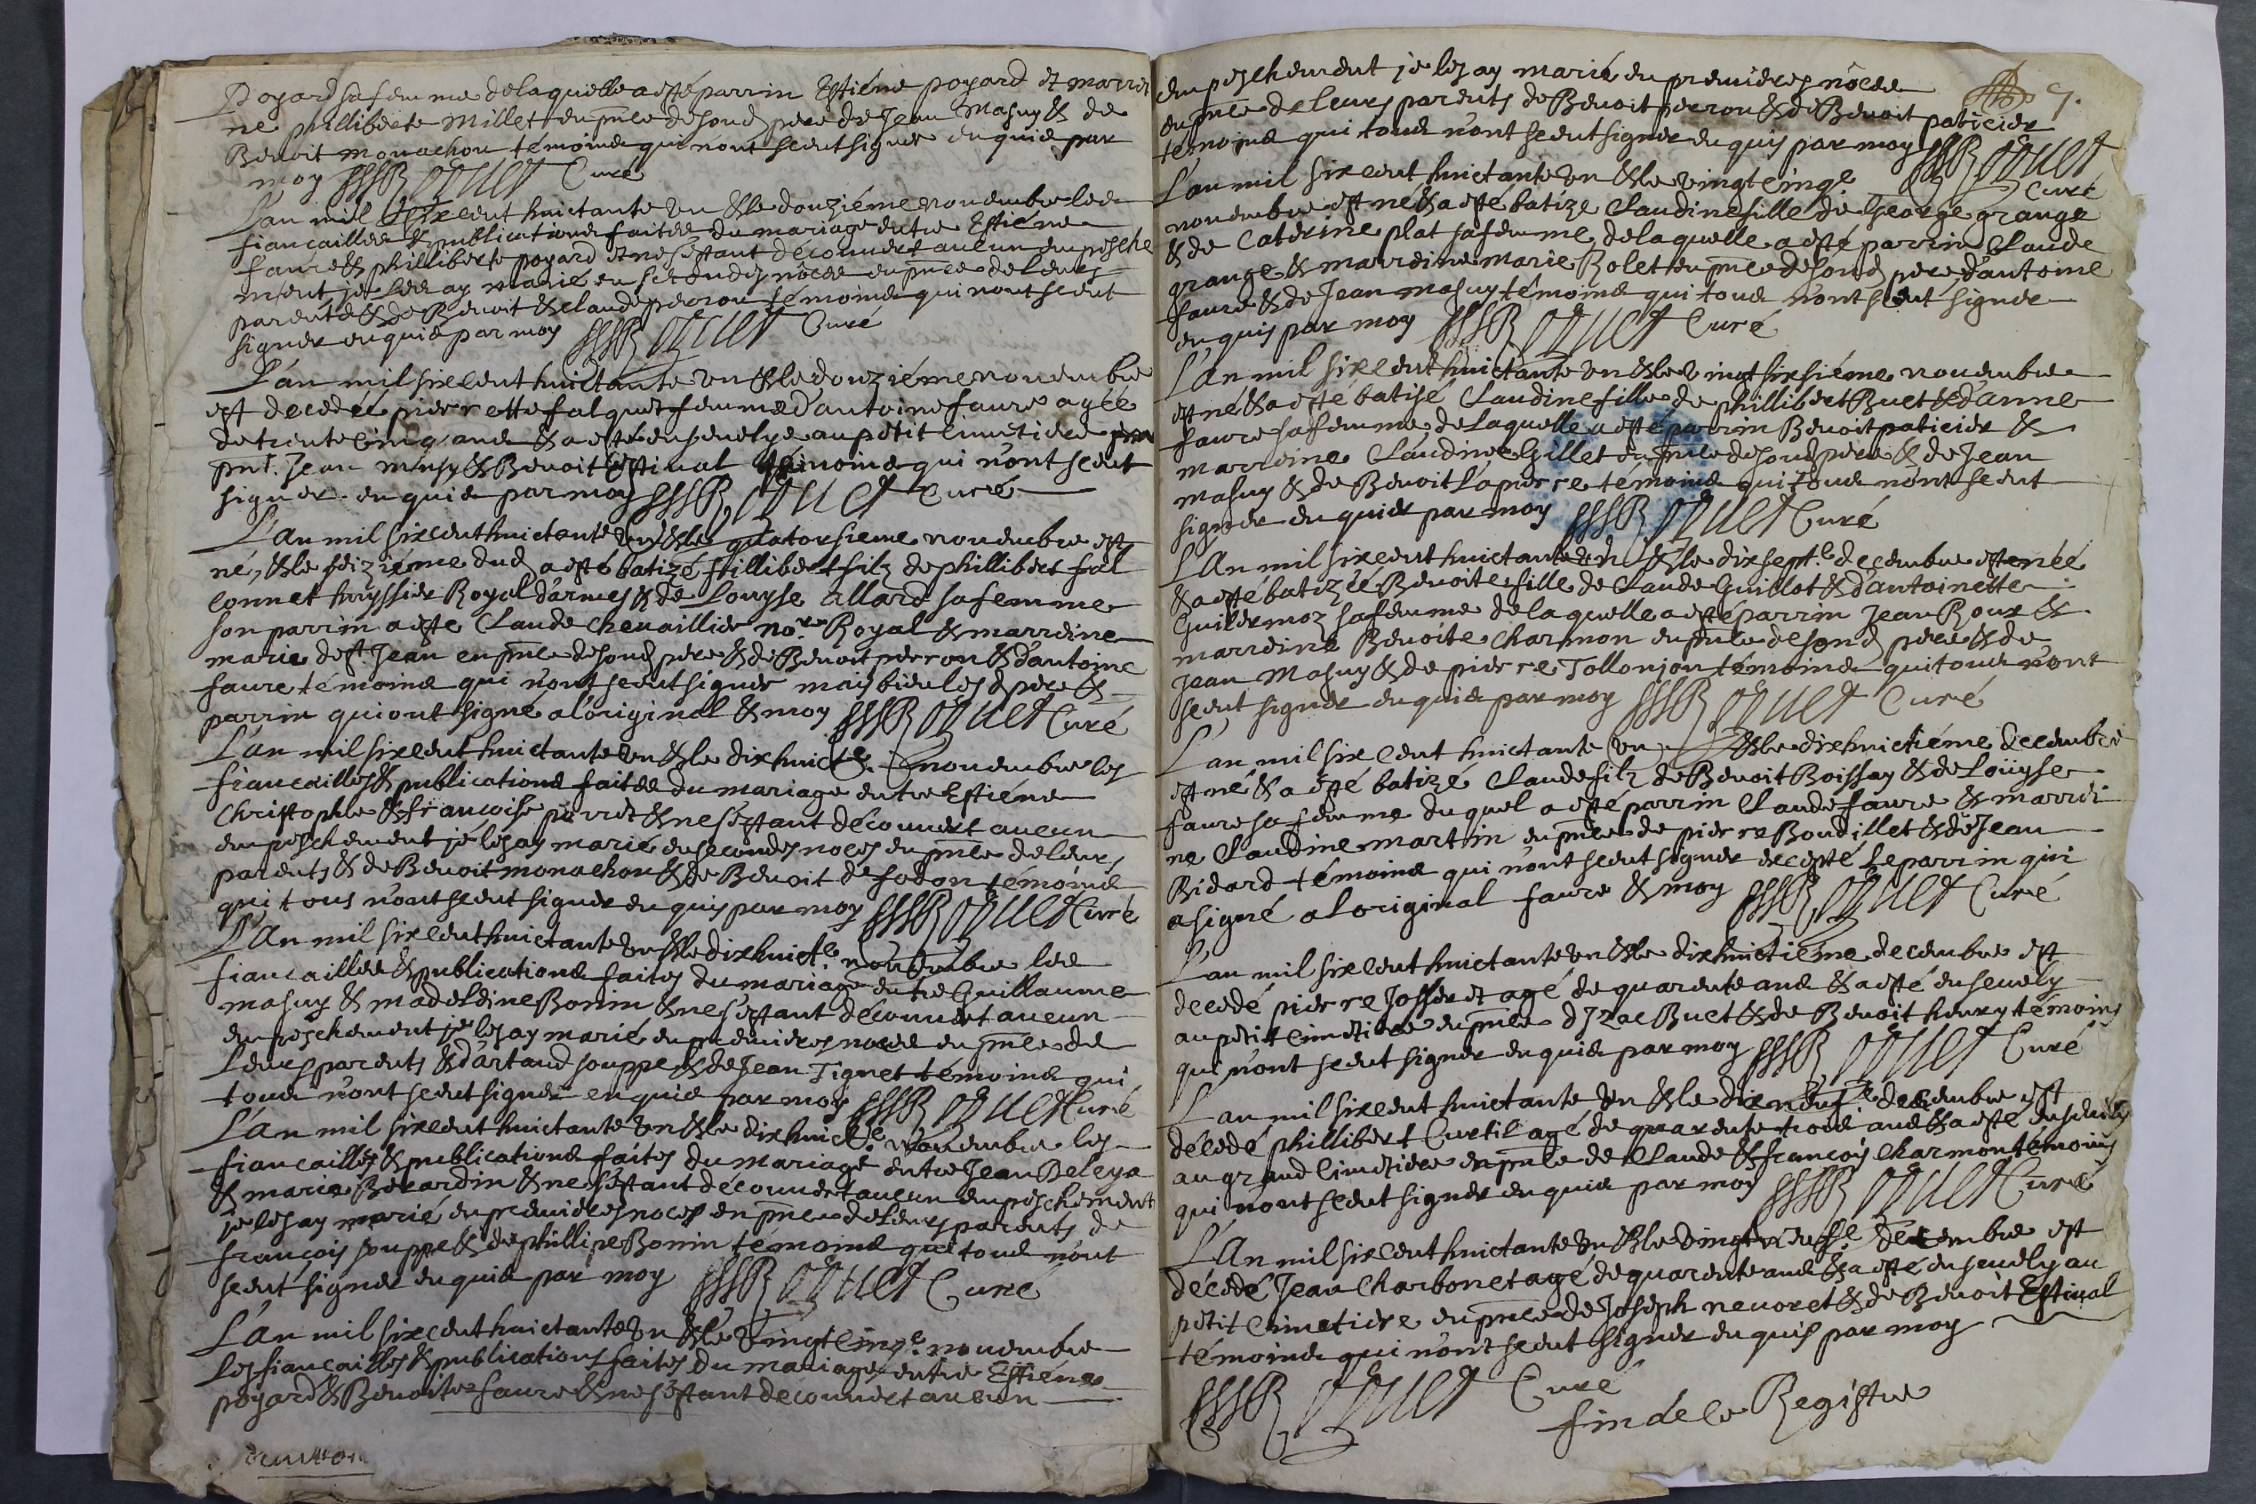 Poyard sa femme de laquelle a esté parrin Estiéne poyard et marrei
ne philliberte Millet en pnce de sond pere de Jean Masuy & de
Benoit monachon témoins qui n'ont sceut signer enquis par
moy Bozuet Curé
L'an mil six cent huictante un & le douziéme novembre les
fiancailles & publications faites du mariage entre Estiéne
faure & philliberte poyard et ne s'estant découvert aucun empesche
ment je les ay marié en secondes nôces en pnce de leurs
parents & de Benoit & claude perron témoins qui n'ont sceut
signer enquis par moy Bozuet Curé
L'an mil six cent huictante un & le douziéme novembre
est decedée pierrette falquet femme d'antoine faure agée
de trente cinq ans & a esté ensevelye au petit cimetiere
pnt. Jean masuy & Benoit Estival témoins qui n'ont sceut
signer enquis par moy Bozuet Curé
L'an mil six cent huictante un & le quatorsieme novembre est
né, & le seiziéme dud a esté batizé phillibert filz de phillibert fal
connet huyssier Royal d'armes & de Louyse allard sa femme
son parrin a esté Claude chevaillier no.re Royal & marreine
marie de st. Jean en pnce de sond pere & de Benoit perron & d'antoine
faure témoins qui n'ont sceut signer mais bien lesd pere &
parrin qui ont signé a l'original & moy Bozuet Curé
L'an mil six cent huictante un & le dixhuict.e novembre les
fiancailles & publications faites du mariage entre Estiéne
Christophle & francoise perret & ne s'estant découvert aucun
empeschement je les ay marié en secondes noces en pnce de leurs
parents & de Benoit monachon & de Benoit de fodon témoins
qui tous n'ont sceut signer enquis par moy Bozuet Curé
L'An mil six cent huictante un & le dixhuict.e novembre les
fiancailles & publications faites du mariage entre Guillaume
masuy & madeleine Bonin & ne s'estant découvert aucun
empeschement je les ay marié en premieres noces en pnce de
Leurs parents & d'artaud souppe & de Jean Tignet témoins qui
tous n'ont sceut signer enquis par moy Bozuet Curé
L'An mil six cent huictante un & le dixhuict.e novembre les
fiancailles & publications faites du mariage entre Jean Beleya
& marie Berardin & ne s'estant découvert aucun empeschement
je les ay marié en premieres noces en pnce de leurs parents de
françois souppe & de phillipe Bonin témoins qui tous n'ont
sceut signer enquis par moy Bozuet Curé
L'An mil six cent huictante un & le vingt cinq.e novembre
les fiancailles & publications faites du mariage entre Estiéne
poyard & Benoite faure & ne s'estant découvert aucun
empeschement je les ay marié en premieres nôces
en pnce de leurs parents de Benoit perron & de Benoit paticier
témoins qui tous n'ont sceut signer enquis par moy Bozuet
Curé
9.
L'an mil six cent huictante un & le vingt cinq.e
novembre est né & a esté batizé Claudine fille de George grange
& de Caterine plat sa femme de laquelle a esté parrin Claude
grange & marreine marie Bolet en pnce de sond pere, d'antoine
faure & de Jean masuy témoins qui tous n'ont sceut signer
enquis par moy Bozuet Curé
L'An mil six cent huictante un & le vingt sixsiéme novembre
est né & a esté batisé Claudine fille de phillibert Buet & d'anne
faure sa femme de laquelle a esté parrin Benoit paticier &
marreine Claudine Gillet en pnce de sond pere & de Jean
masuy & de Benoit Lapierre témoins qui tous n'ont sceut
signer enquis par moy Bozuet Curé
L'An mil six cent huictante un & le dixsept.e decembre est née
& a esté batizée Benoite fille de Claude Guillot & d'antoinette
Guillermoz sa femme de laquelle a esté parrin Jean Roux &
marreine Benoite charmon en pnce de sond pere & de
Jean Masuy & de pierre Tollonjon témoins qui tous n'ont
sceut signer enquis par moy Bozuet Curé
L'an mil six cent huictante un & le dixhuictiéme decembre
est né & a esté batizé Claude filz de Benoit Boissay & de Loüyse
faure sa femme duquel a esté parrin Claude faure & marrei
ne Claudine martin en pnce de pierre Boudillet & de Jean
Bidard témoins qui n'ont sceut signer excepté Le parrin qui
a signé a Loriginal faure & moy Bozuet Curé
L'an mil six cent huictante un & le dixhuictiéme decembre est
decedé pierre Josseret agé de quarente ans & a esté ensevely
au petit cimetiere en pnce d'Izac Buet & de Benoit henry témoins
qui n'ont sceut signer enquis par moy Bozuet Curé
L'an mil six cent huictante un & le dix neuf.e decembre est
décédé phillibert Curtil agé de quarente trois ans & a esté ensevely
au grand cimetiere en pnce de Claude & françois charmon témoins
qui n'ont sceut signer enquis par moy Bozuet Curé
L'An mil six cent huictante un & le vingt neuf.e decembre est
décédé Jean Charbonet agé de quarente ans & a esté ensevely au
petit Cimetiere en pnce de Joseph nevoret & de Benoit Estival
témoins qui n'ont sceut signer enquis par moy
Bozuet Curé
fin de ce Registre